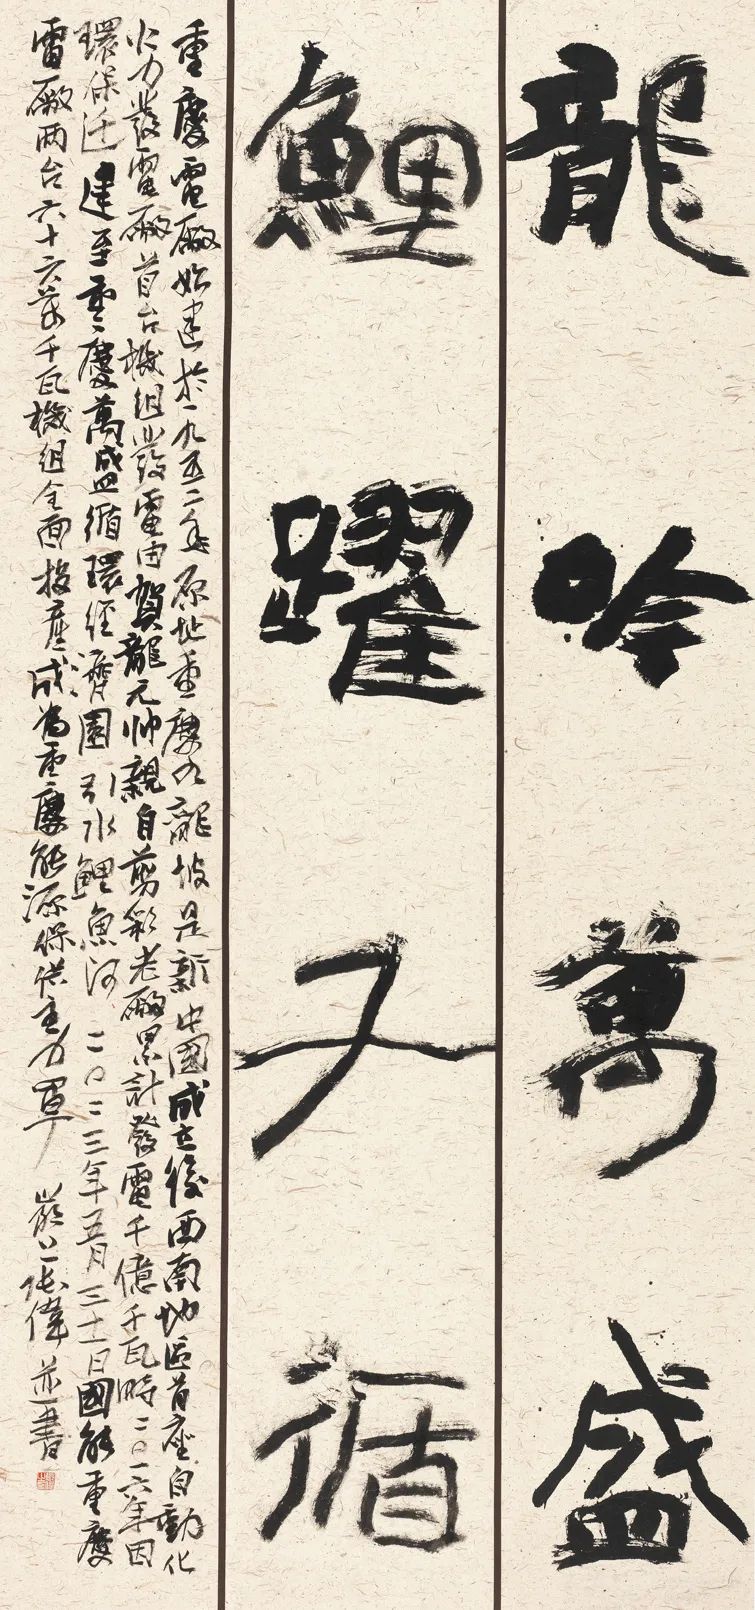 龍吟萬盛
鯉躍子循
重慶電廠始建於一九五二年原址重慶九龍坡是新中國成立後西南地區首座自動化
火力發電廠首台機組發電由賀龍元帥親自剪彩老廠累計發電千億千瓦時二〇一六年因
環保迁建至重慶萬盛循環經濟園引水鯉魚河二〇二三年五月三十一日國能重慶
電廠兩台六十六萬千瓦機組全面投產成為重慶能源保供主力軍 張偉並書